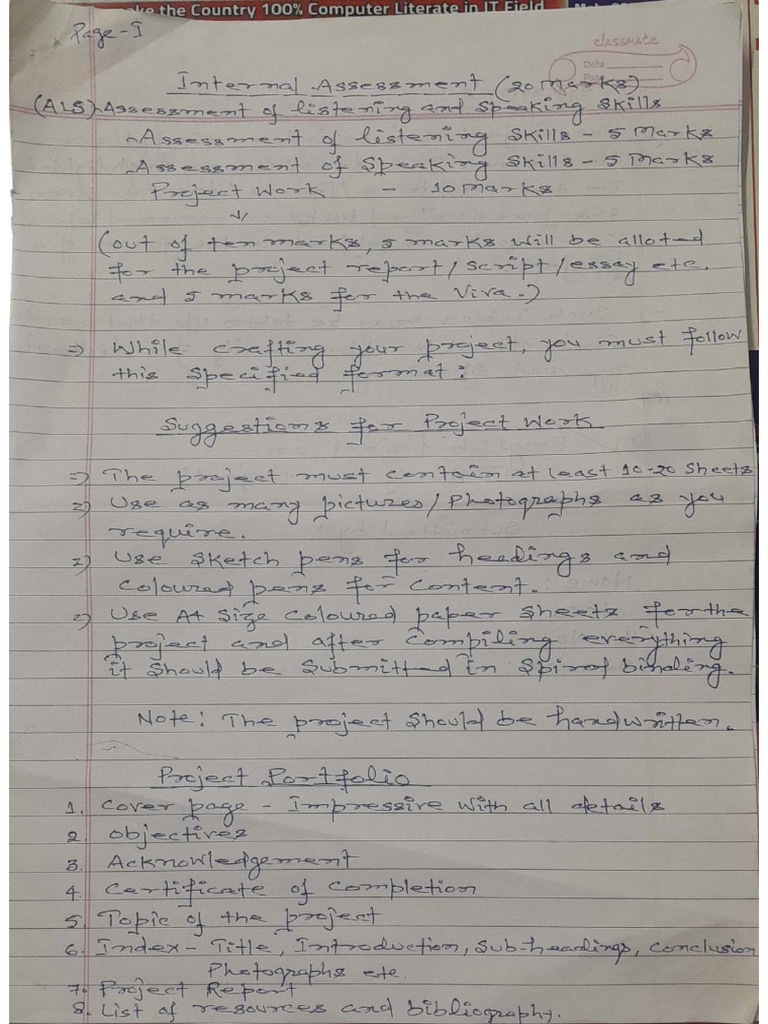 the Country 100% Computer Literate in IT Field
Page-I
classmate
Date
Page
Internal Assessment (20 Marks)
(ALS) Assessment of listening and Speaking Skills
Assessment of listening Skills - 5 Marks
Assessment of Speaking Skills - 5 Marks
Project Work - 10 Marks
(out of ten marks, 5 marks will be alloted
for the project report/script/essay etc.
and 5 marks for the Viva.)
⇒ While crafting your project, you must follow
this specified format:
Suggestions for Project Work
⇒ The project must contain at least 10-20 Sheets
⇒ Use as many pictures/Photographs as you
require.
⇒ Use Sketch pens for headings and
coloured pens for content.
⇒ Use A4 Size coloured paper sheets for the
project and after compiling everything
it should be submitted in Spiral binding.
Note: The project should be handwritten.
Project Portfolio
1. Cover page - Impressive with all details
2. Objectives
3. Acknowledgement
4. Certificate of completion
5. Topic of the project
6. Index - Title, Introduction, Sub-headings, Conclusion
Photographs etc.
7. Project Report
8. List of resources and bibliography.